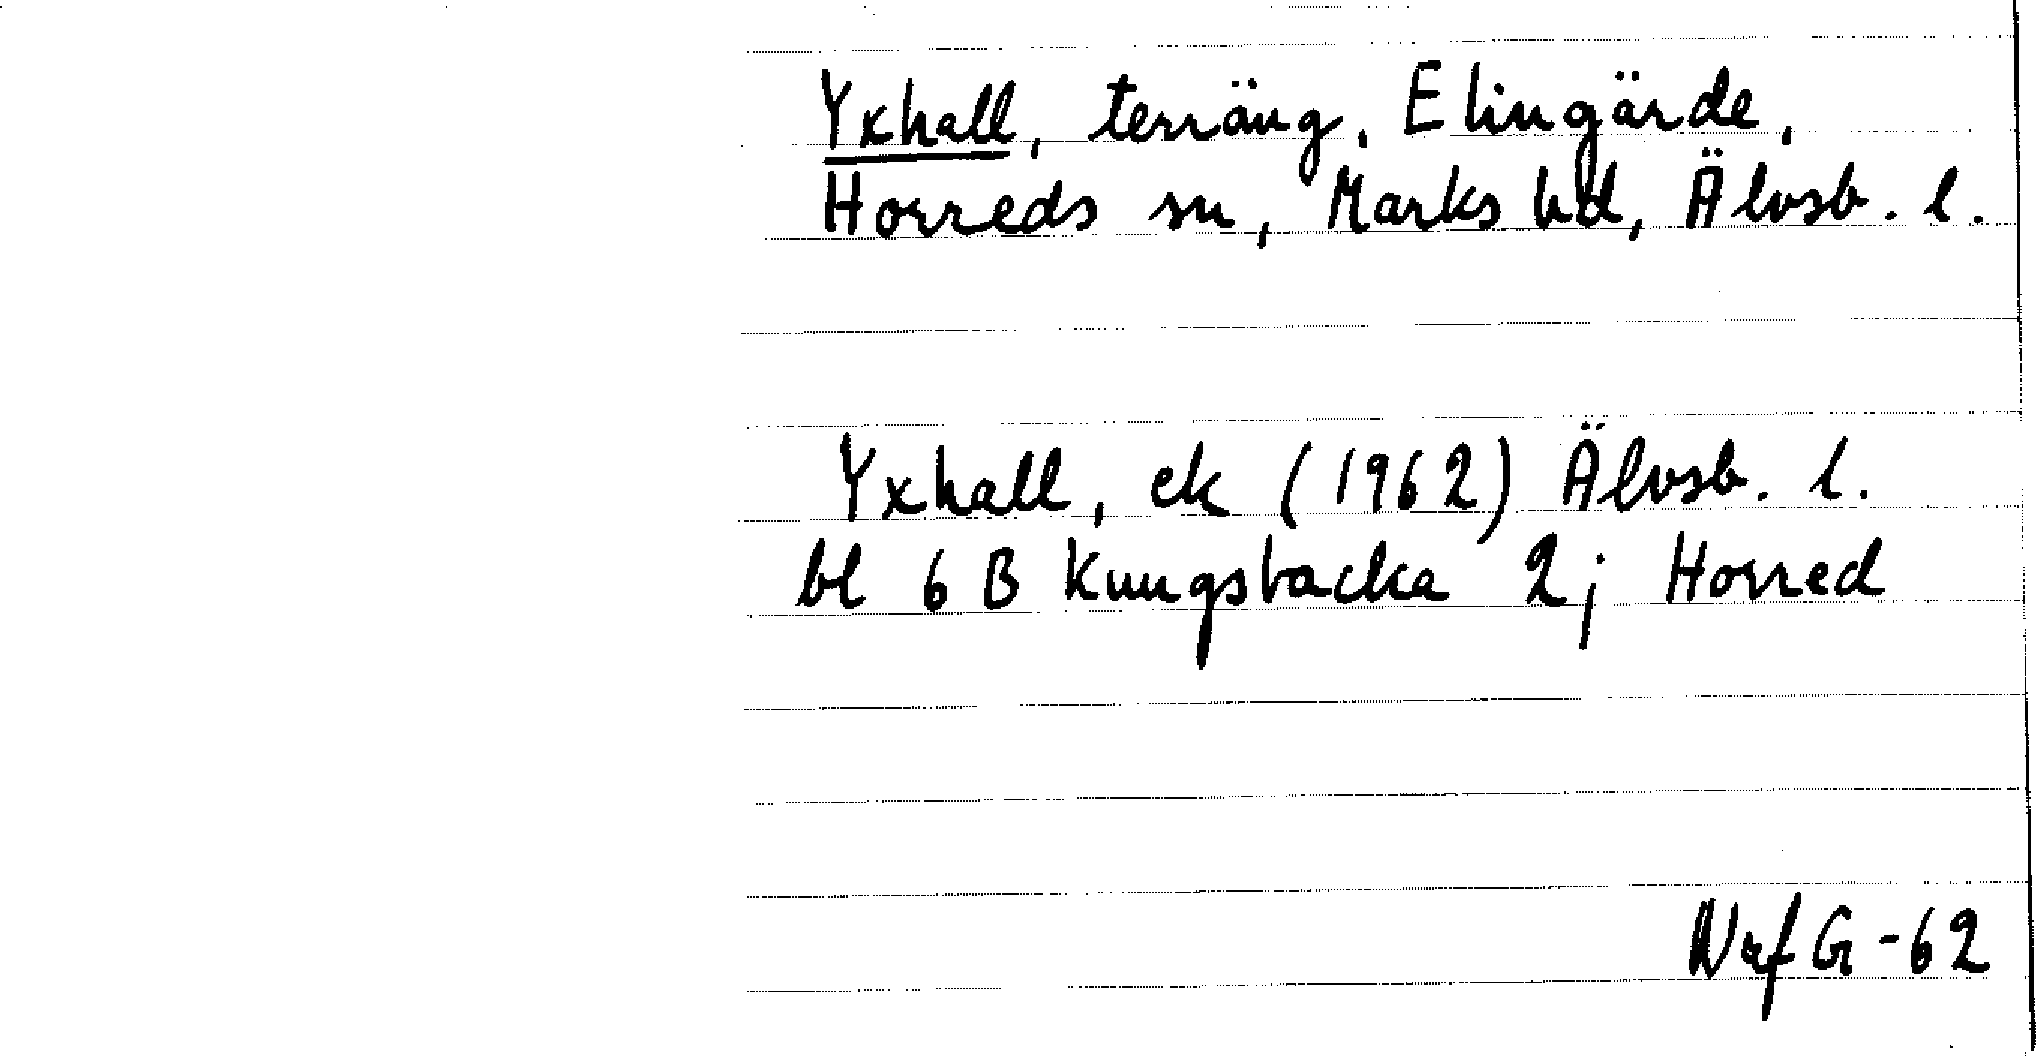 Yxhall, terräng, Elingärde,
Horreds sn, Marks hd, Älvsb. l.
Yxhall, ek (1962) Älvsb. l.
bl 6 B Kungsbacka 2j Horred
NafG-62